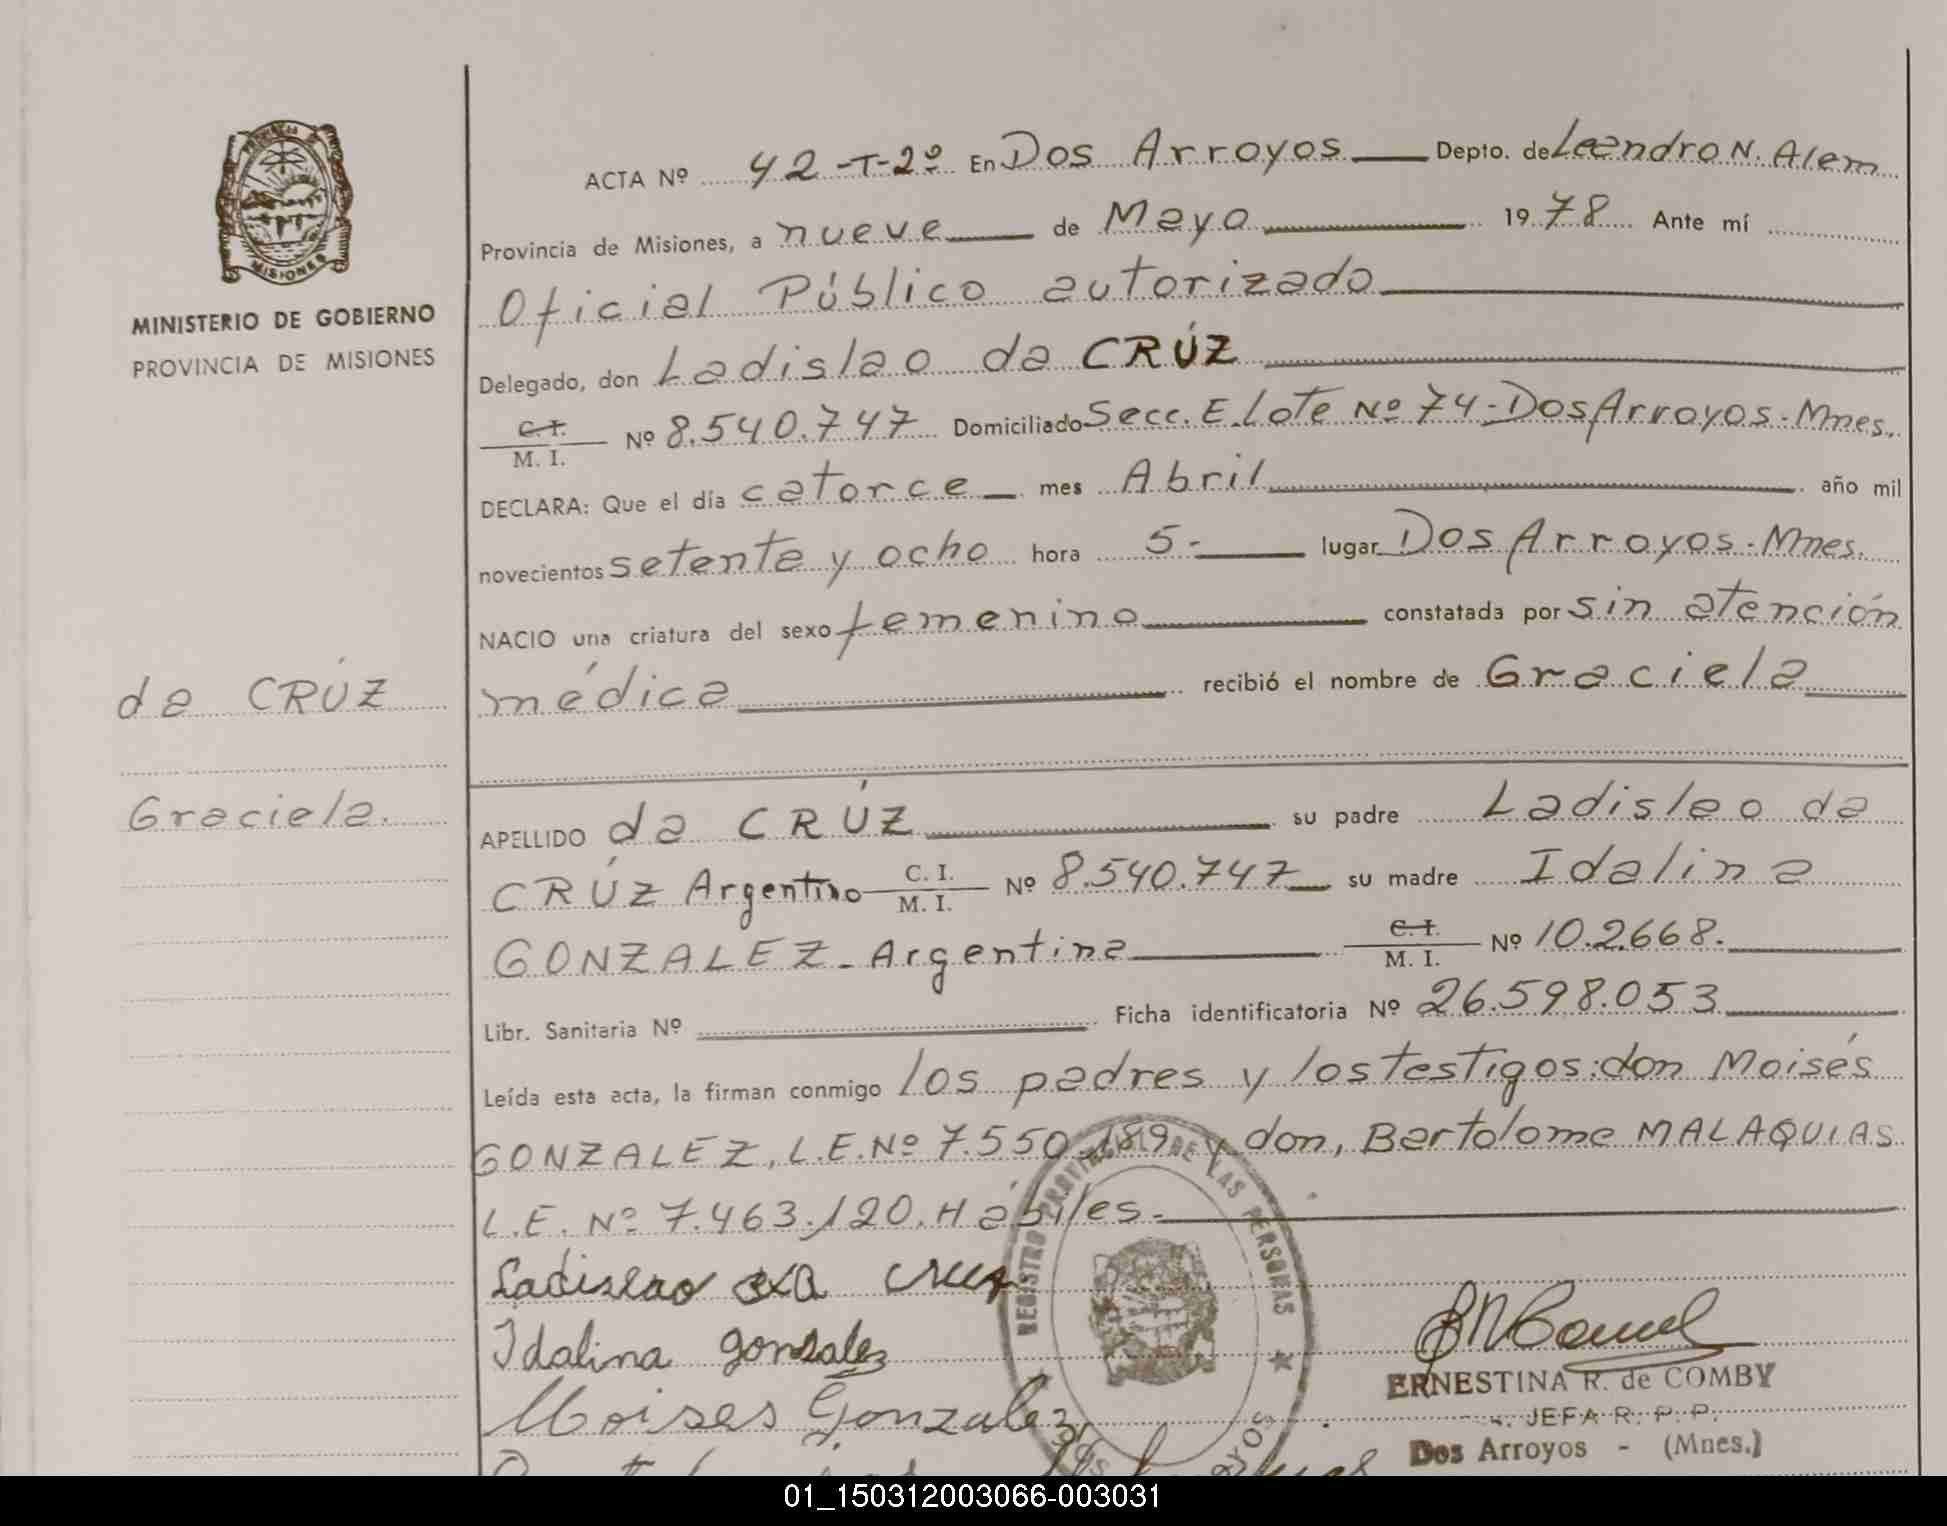 PROVINCIA DE
MISIONES
MINISTERIO DE GOBIERNO
PROVINCIA DE MISIONES
da CRÚZ
Graciela.
ACTA Nº 42-T-2º En Dos Arroyos Depto. de Leandro N. Alem
Provincia de Misiones, a nueve de Mayo 1978 Ante mí
Oficial Público autorizado
Delegado, don Ladislao da CRÚZ
C.I.
M. I. Nº 8.540.747 Domiciliado Secc. E. Lote Nº 74-Dos Arroyos-Mnes.
DECLARA: Que el día catorce mes Abril año mil
novecientos setenta y ocho hora 5.- lugar Dos Arroyos-Mnes.
NACIO una criatura del sexo femenino constatada por sin atención
médica recibió el nombre de Graciela
APELLIDO da CRÚZ su padre Ladislao da
CRÚZ Argentino C. I. M. I. Nº 8.540.747 su madre Idalina
GONZALEZ - Argentina C.I. M. I. Nº 10.2668.
Libr. Sanitaria Nº Ficha identificatoria Nº 26.598.053
Leída esta acta, la firman conmigo los padres y los testigos: don Moisés
GONZALEZ, L.E. Nº 7.550.189 y don, Bartolome MALAQUIAS
L.E. Nº 7.463.120. Hábiles.-
Ladislao da Cruz
Idalina gonzalez
Moises Gonzalez
REGISTRO PROVINCIAL DE LAS PERSONAS
ERNESTINA R. de COMBY
JEFA R. P. P.
Dos Arroyos - (Mnes.)
01_150312003066-003031